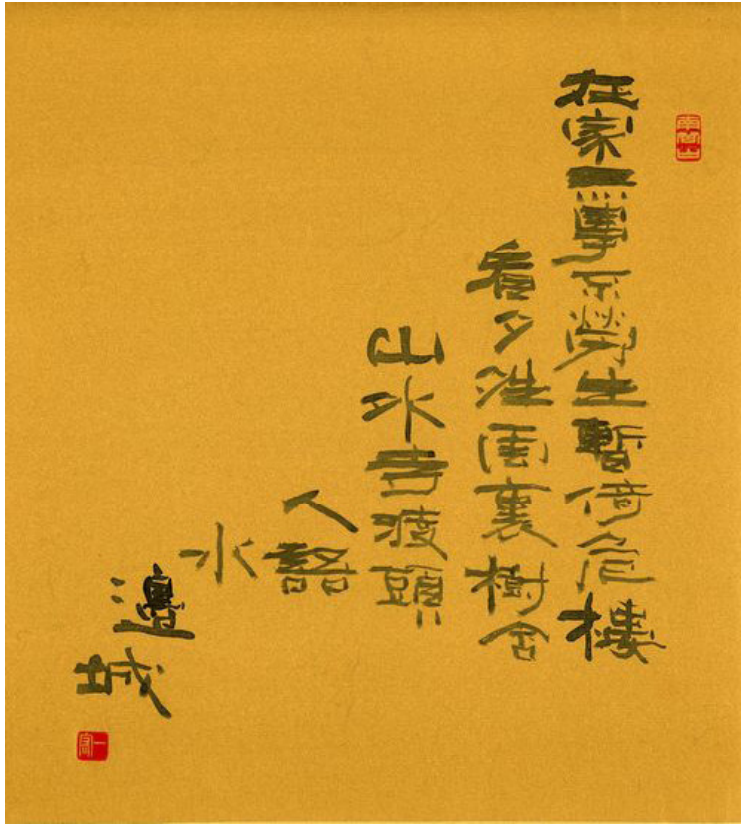 在家無事不勞生暫倚危樓
看夕雲裏樹含
山外寺渡頭
人語
水
邊城